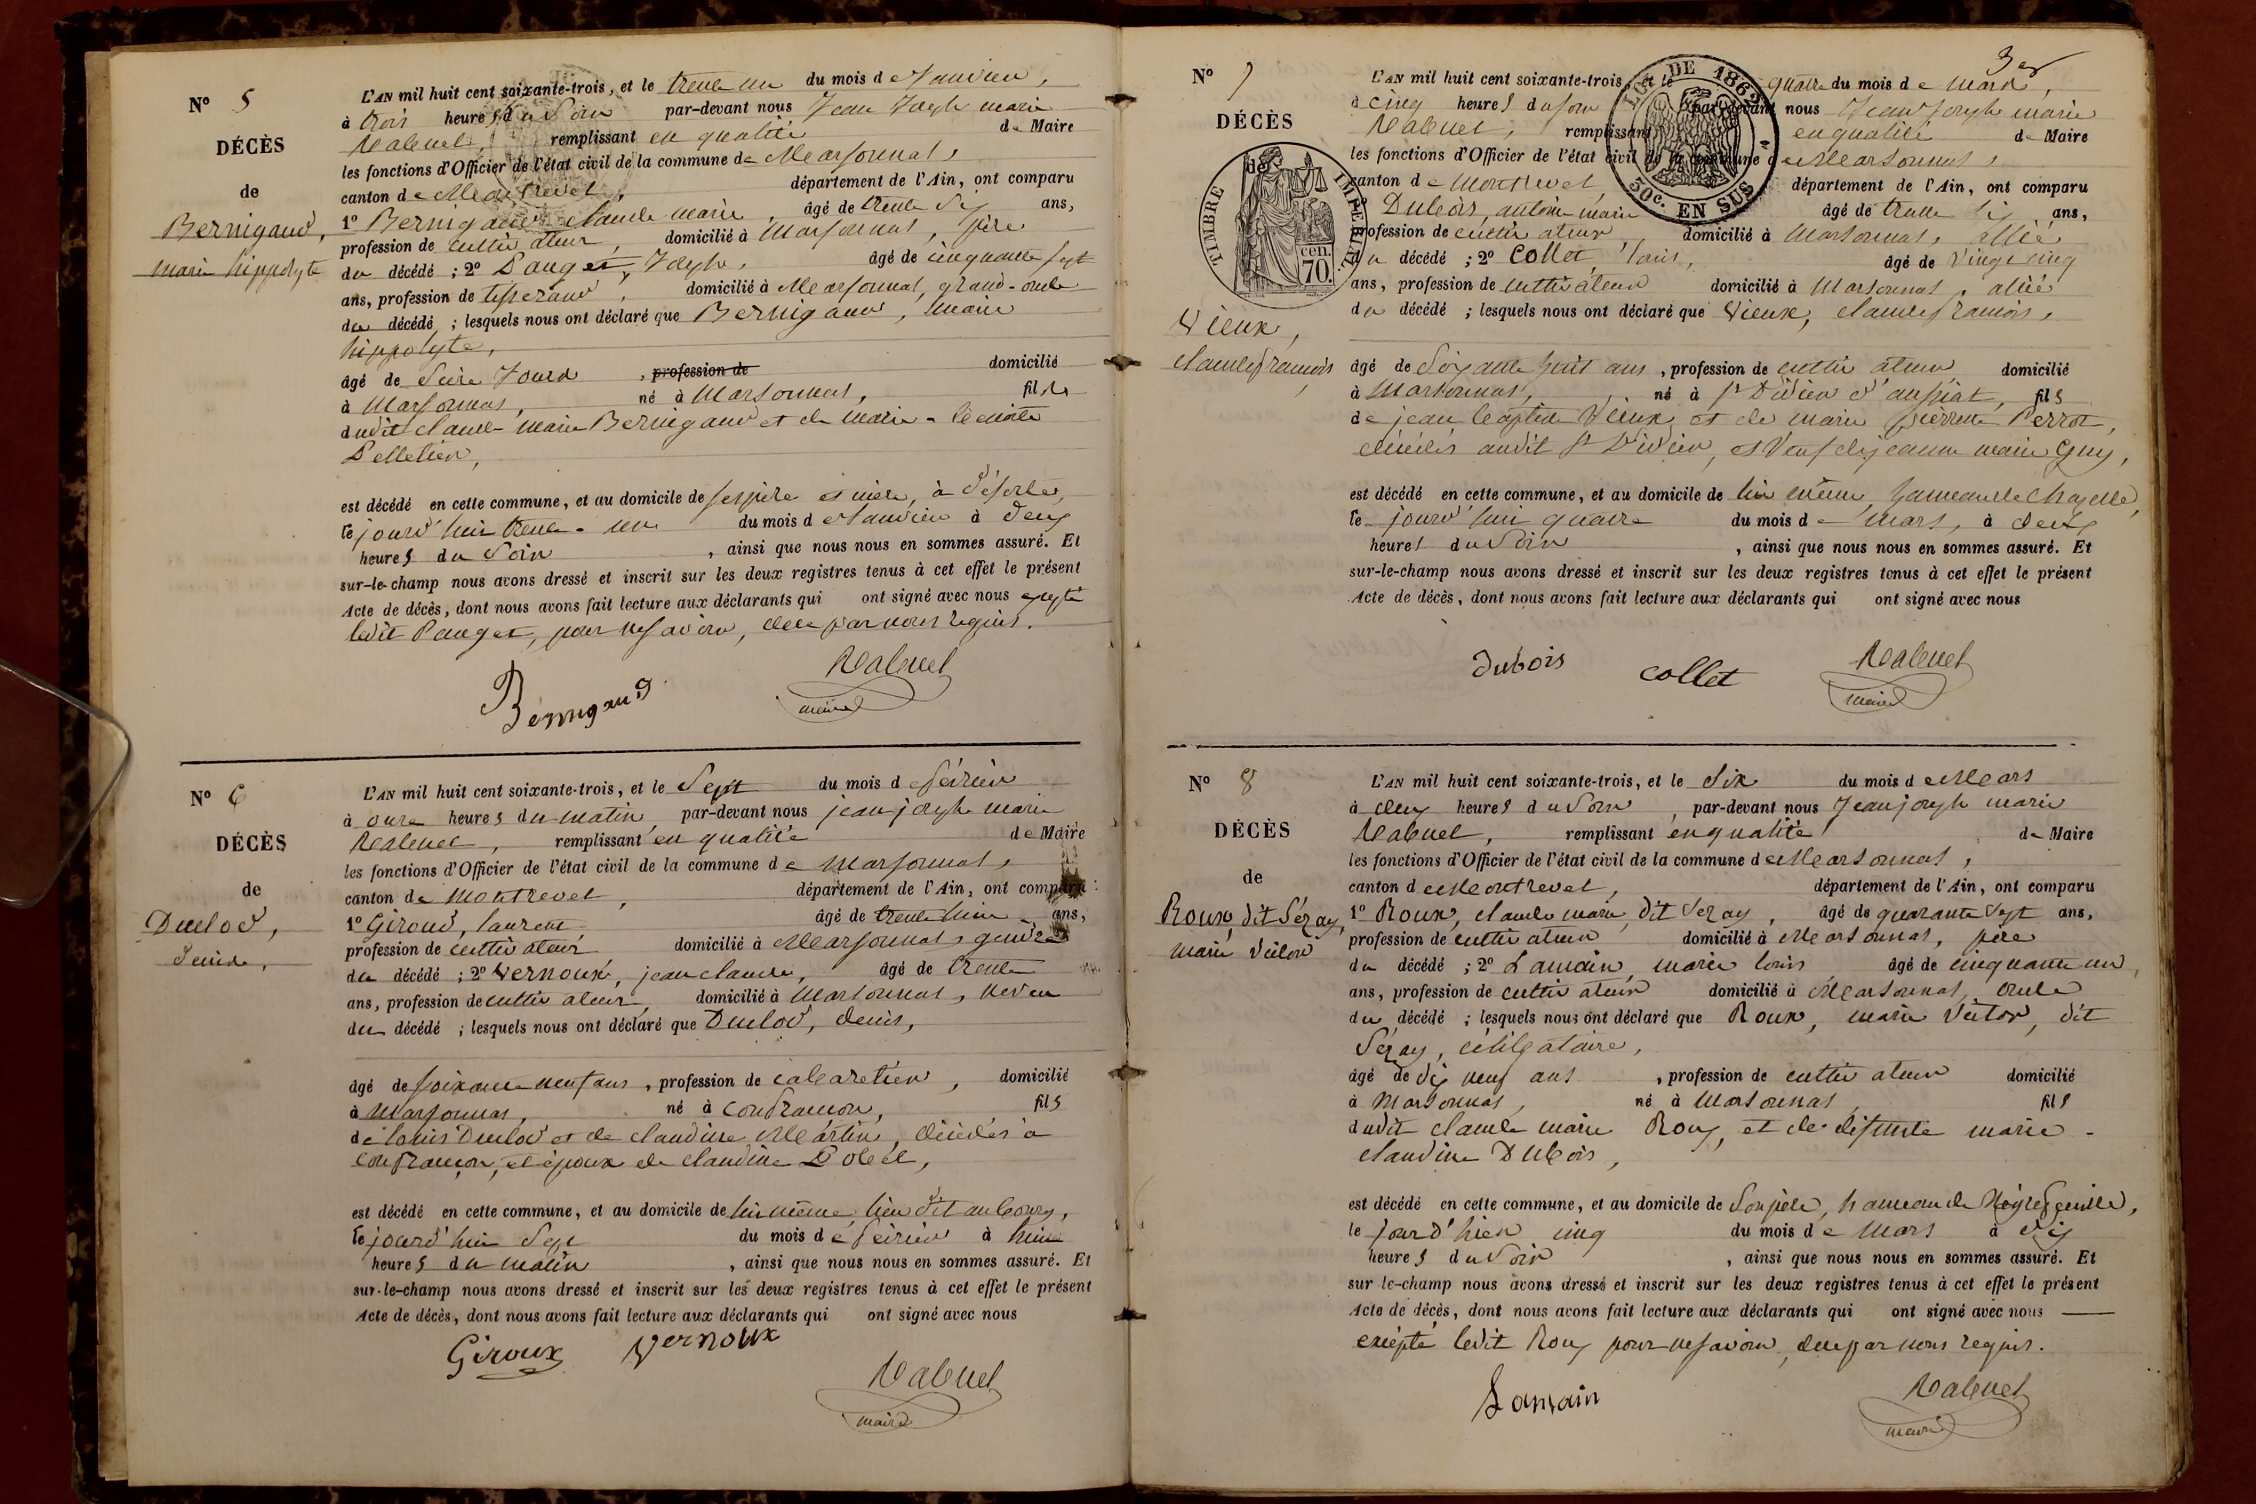 Nº 5
DÉCÈS
de
Bernigaud,
marie hippolyte
L'AN mil huit cent soixante-trois, et le trente un du mois de Janvier,
à trois heures du Soir par-devant nous Jean Joseph marie
Rabuel, remplissant en qualité de Maire
les fonctions d'Officier de l'état civil de la commune de Marsonnas,
canton de Montrevel, département de l'Ain, ont comparu
1º Bernigaud claude marie, âgé de trente six ans,
profession de cultivateur, domicilié à Marsonnas, père
du décédé ; 2º Pauget, Joseph, âgé de cinquante sept
ans, profession de tisserand, domicilié à Marsonnas, grand-oncle
du décédé ; lesquels nous ont déclaré que Bernigaud, marie
hippolyte,
âgé de Seize Jours , profession de domicilié
à Marsonnas, né à Marsonnas, fils
dudit claude marie Bernigaud et de marie-
Pelletier,
est décédé en cette commune, et au domicile de ses père et mère, à
le jourd'hui trente-un du mois de Janvier à deux
heures du Soir , ainsi que nous nous en sommes assuré. Et
sur-le-champ nous avons dressé et inscrit sur les deux registres tenus à cet effet le présent
Acte de décès, dont nous avons fait lecture aux déclarants qui ont signé avec nous excepté
ledit Pauget, pour ne savoir, de ce par nous requis.
Bernigaud
Rabuel
maire
Nº 6
DÉCÈS
de
Duclod,
Denis,
L'AN mil huit cent soixante-trois, et le Sept du mois de février
à onze heures du matin, par-devant nous jean joseph marie
Rabuel, remplissant en qualité de Maire
les fonctions d'Officier de l'état civil de la commune de Marsonnas,
canton de Montrevel, département de l'Ain, ont comparu :
1º Giroud, laurent, âgé de trente huit ans,
profession de cultivateur domicilié à Marsonnas, gendre
du décédé ; 2º Vernoux, jean claude, âgé de trente
ans, profession de cultivateur, domicilié à Marsonnas, neveu
du décédé ; lesquels nous ont déclaré que Duclod, denis,
âgé de soixante neuf ans , profession de cabaretier, domicilié
à Marsonnas, né à Confrançon, fils
de louis Duclod et de claudine Martin, décédés à
Confrançon, et époux de claudine
est décédé en cette commune, et au domicile de lui même, lieu dit au bourg,
le jourd'hui Sept du mois de février à huit
heures du matin , ainsi que nous nous en sommes assuré. Et
sur-le-champ nous avons dressé et inscrit sur les deux registres tenus à cet effet le présent
Acte de décès, dont nous avons fait lecture aux déclarants qui ont signé avec nous
Giroux Vernoux
Rabuel
maire
3
Nº 7
DÉCÈS
de
Vieux,
claude françois
TIMBRE IMPÉRIAL
70 cen.
LOI DE 1862
50c. EN SUS
L'AN mil huit cent soixante-trois, et le quatre du mois de Mars,
à cinq heures du soir par-devant nous Jean Joseph marie
Rabuel, remplissant en qualité de Maire
les fonctions d'Officier de l'état civil de la commune de Marsonnas,
canton de Montrevel, département de l'Ain, ont comparu
1º Dubois, antoine marie âgé de trente six ans,
profession de cultivateur domicilié à Marsonnas, allié
du décédé ; 2º Collet, louis, âgé de vingt cinq
ans, profession de cultivateur domicilié à Marsonnas, allié
du décédé ; lesquels nous ont déclaré que Vieux, claude françois,
âgé de Soixante huit ans , profession de cultivateur domicilié
à Marsonnas, né à St Didier d'aussiat, fils
de jean baptiste Vieux et de marie pierrette Perrot,
décédés audit St Didier, et Veuf de jeanne marie Guy,
est décédé en cette commune, et au domicile de lui même, hameau de
le jourd'hui quatre du mois de Mars, à deux
heures du Soir , ainsi que nous nous en sommes assuré. Et
sur-le-champ nous avons dressé et inscrit sur les deux registres tenus à cet effet le présent
Acte de décès, dont nous avons fait lecture aux déclarants qui ont signé avec nous
Dubois collet Rabuel
maire
Nº 8
DÉCÈS
de
Roux, dit Sézay,
marie Victor
L'AN mil huit cent soixante-trois, et le Six du mois de Mars
à deux heures du Soir, par-devant nous Jean joseph marie
Rabuel, remplissant en qualité de Maire
les fonctions d'Officier de l'état civil de la commune de Marsonnas,
canton de Montrevel, département de l'Ain, ont comparu
1º Roux, claude marie, dit Sezay, âgé de quarante sept ans,
profession de cultivateur domicilié à Marsonnas, père
du décédé ; 2º Lamain, marie louis âgé de cinquante un,
ans, profession de cultivateur domicilié à Marsonnas, oncle
du décédé ; lesquels nous ont déclaré que Roux, marie Victor, dit
Sezay, célibataire,
âgé de dix neuf ans , profession de cultivateur domicilié
à Marsonnas, né à Marsonnas, fils
dudit claude marie Roux, et de défunte marie-
claudine Dubois,
est décédé en cette commune, et au domicile de Son père, hameau de
le jour d'hier cinq du mois de Mars à dix
heures du Soir , ainsi que nous nous en sommes assuré. Et
sur-le-champ nous avons dressé et inscrit sur les deux registres tenus à cet effet le présent
Acte de décès, dont nous avons fait lecture aux déclarants qui ont signé avec nous
excepté ledit Roux pour ne savoir, de ce par nous requis.
Lamain
Rabuel
maire